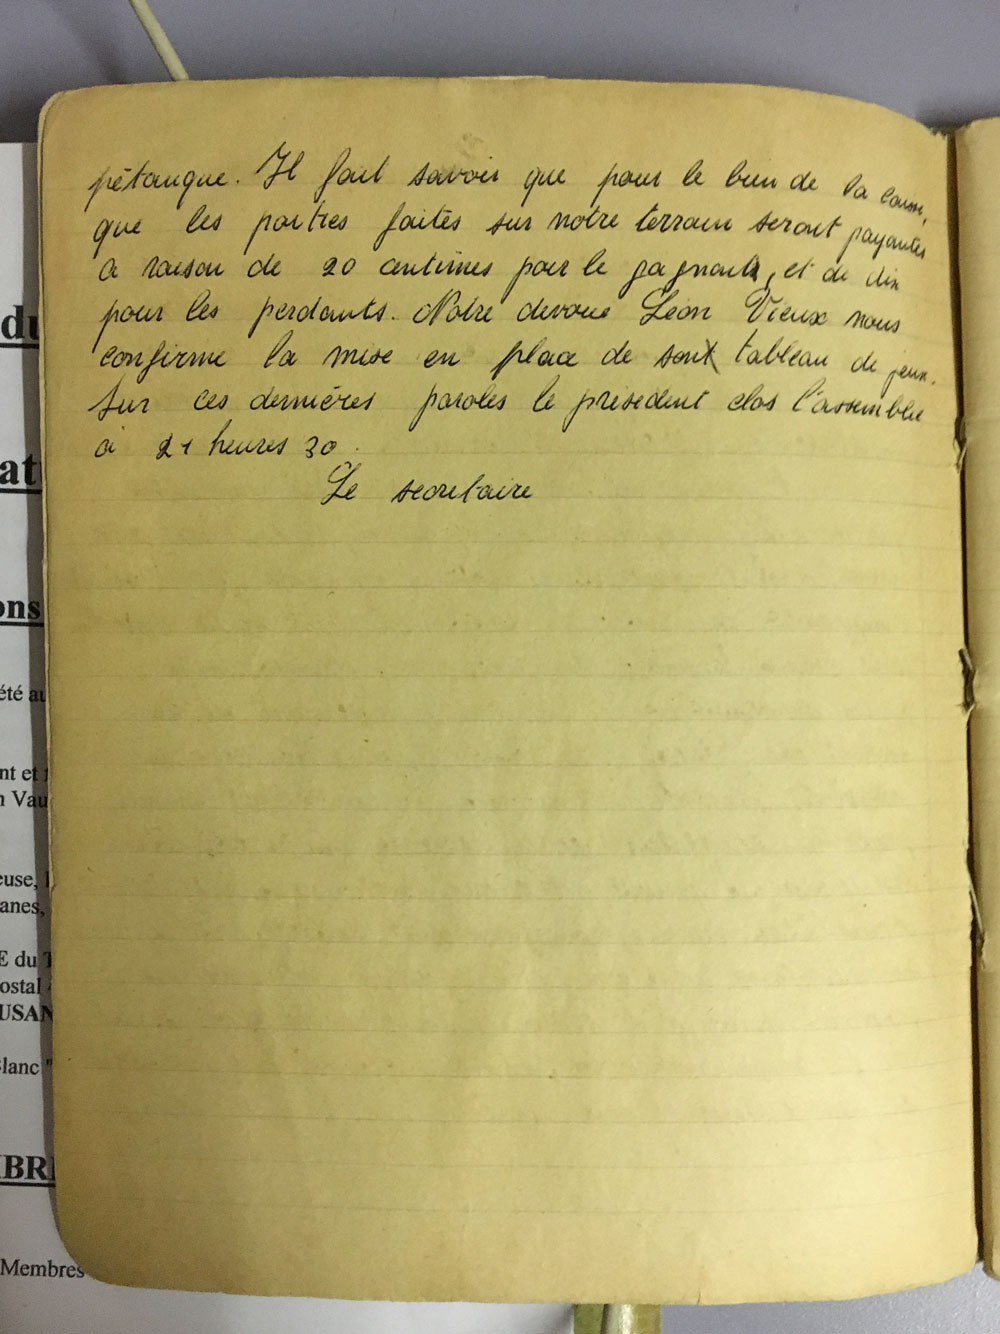 pétanque. Il fait savoir que pour le bien de la caisse,
que les parties faites sur notre terrain seront payantes
a raison de 20 centimes pour le gagnant, et de dix
pour les perdants. Notre devoué Léon Vieux nous
confirme la mise en place de son tableau de jeux.
Sur ces dernières paroles le président clos l'assemblée
à 21 heures 30.
Le secretaire
du
at
ons
été au
nt et
n Vau
euse,
anes,
E du T
ostal
USAN
Blanc "
BRE
Membres